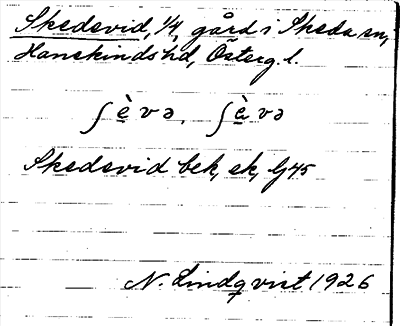 Skedevid, 1/4, gård i Skeda sn,
Hanekinds hd, Österg. l.
ʃèvə, ʃèvə
Skedevid bek, ek, Gj45
N. Lindqvist 1926